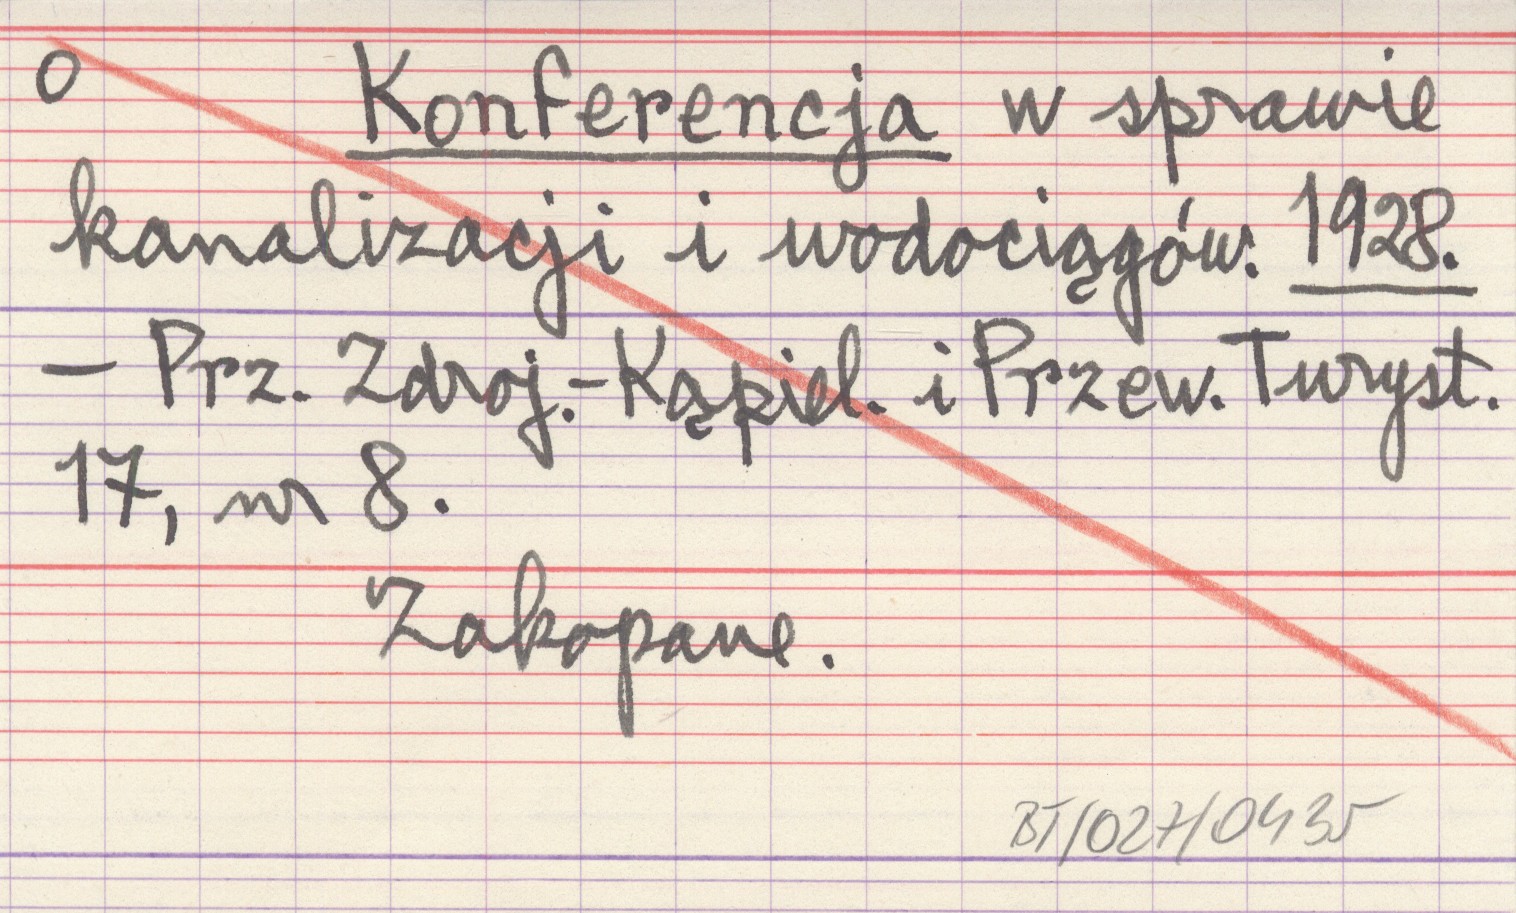 O Konferencja w sprawie
kanalizacji i wodociągów. 1928.
– Prz. Zdroj.-Kąpiel. i Przew. Turyst.
17, nr 8.
Zakopane.
BT/027/0435